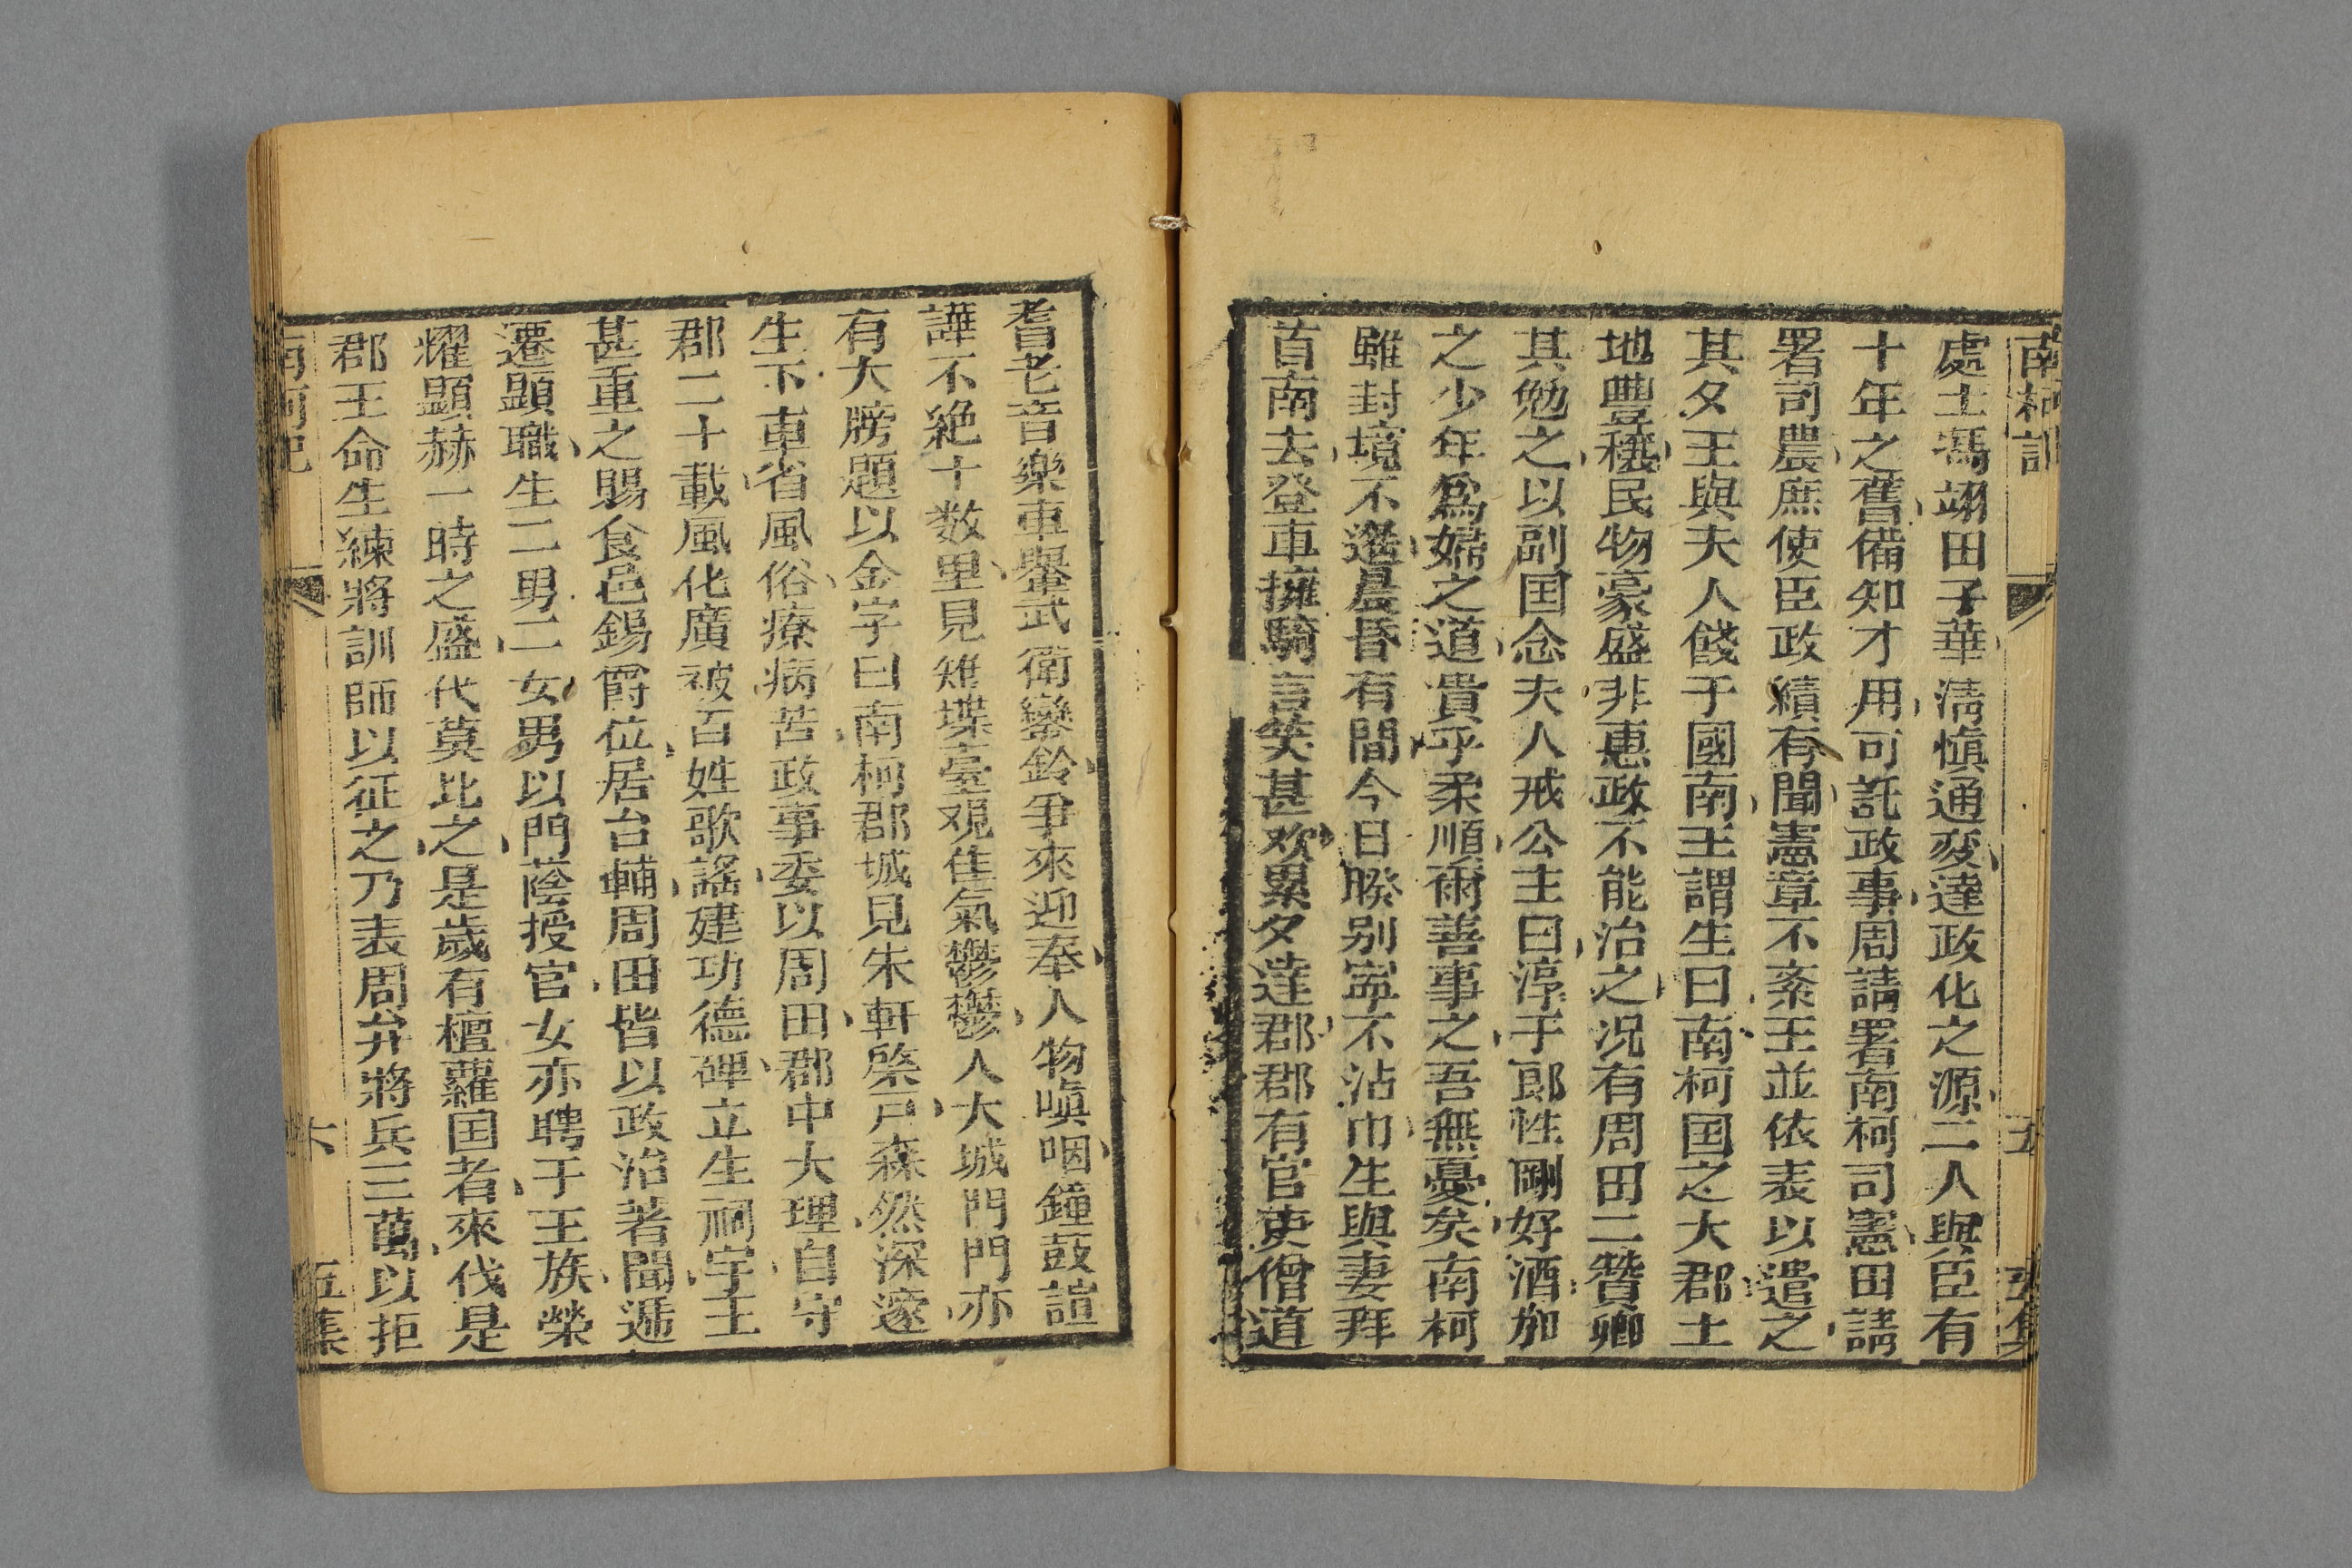 南柯記
五
五集
處士馮翊田子華淸慎通変達政化之源二人與臣有
十年之舊備知才用可託政事周請署南柯司憲田請
署司農庶使臣政績有聞憲章不紊王並依表以遣之
其夕王與夫人餞于國南王謂生曰南柯国之大郡土
地豐穰民物豪盛非惠政不能治之况有周田二贊卿
其勉之以副国念夫人戒公主曰淳于郎性剛好酒加
之少年爲婦之道貴乎柔順爾善事之吾無憂矣南柯
雖封境不遥晨昏有間今日暌别寧不沾巾生與妻拜
首南去登車擁騎言笑甚欢累夕達郡郡有官吏僧道
耆老音樂車轝武衛鑾鈴爭來迎奉人物嗔咽鐘鼓諠
譁不絶十数里見雉堞臺观佳氣鬱鬱入大城門門亦
有大牓題以金字曰南柯郡城見朱軒棨戸森然深邃
生下車省風俗療病苦政事委以周田郡中大理自守
郡二十載風化廣被百姓歌謠建功德碑立生祠宇王
甚重之賜食邑錫爵位居台輔周田皆以政治著聞遞
遷顯職生二男二女男以門蔭授官女亦聘于王族榮
耀顯赫一時之盛代莫比之是歲有檀蘿国者來伐是
郡王命生練將訓師以征之乃表周弁將兵三萬以拒
南柯記
六
五集